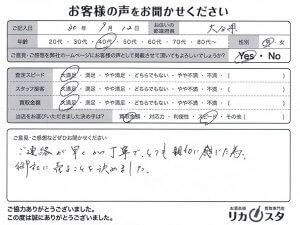 お客様の声をお聞かせください
ご記入日 30年9月12日 お住いの都道府県 大分県
年齢 20代・30代・40代・50代・60代・70代・80代〜 性別 男・女
ご意見・ご感想を弊社ホームページにお客様の声として掲載させて頂いてもよろしいでしょうか? Yes・No
査定スピード 大満足・満足・どちらでもない・やや不満・不満
スタッフ接客 大満足・満足・どちらでもない・やや不満・不満
買取金額 大満足・満足・どちらでもない・やや不満・不満
当店をお選びいただきました決め手は? 買取金額・対応力・利便性・スピード・その他( )
ご意見・ご感想などぜひお聞かせください。
ご連絡が早く、丁寧で、とても親切に感じた為、
御社に売ることを決めました。
ご協力ありがとうございました。
この度は誠にありがとうございました。
お酒高価買取専門店
リカスタ